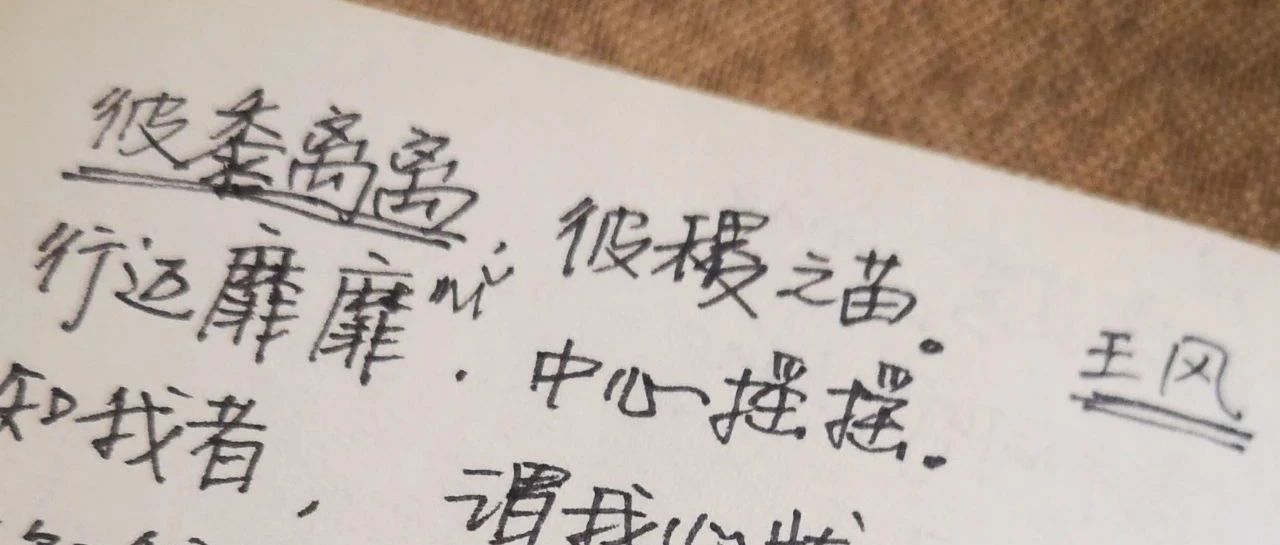 彼黍离离，彼稷之苗。
行迈靡靡mí，中心摇摇。
王风
知我者，谓我心忧